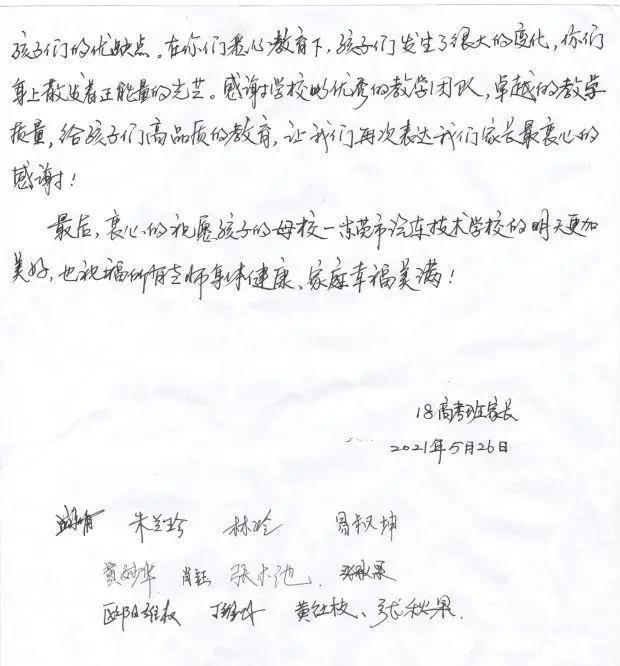 孩子们的优缺点。在你们悉心教育下，孩子们发生了很大的变化，你们
身上散发着正能量的光芒。感谢学校的优秀的教学团队，卓越的教学
质量，给孩子们高品质的教育，让我们再次表达我们家长最衷心的
感谢！
最后，衷心的祝愿孩子的母校一东莞市汽车技术学校的明天更加
美好，也祝福所有老师身体健康、家庭幸福美满！
18高考班家长
2021年5月26日
朱兰珍 林玲 易叔坤
黄妙华 肖钰 张水池
欧阳维权 黄仕枝、张秋果.